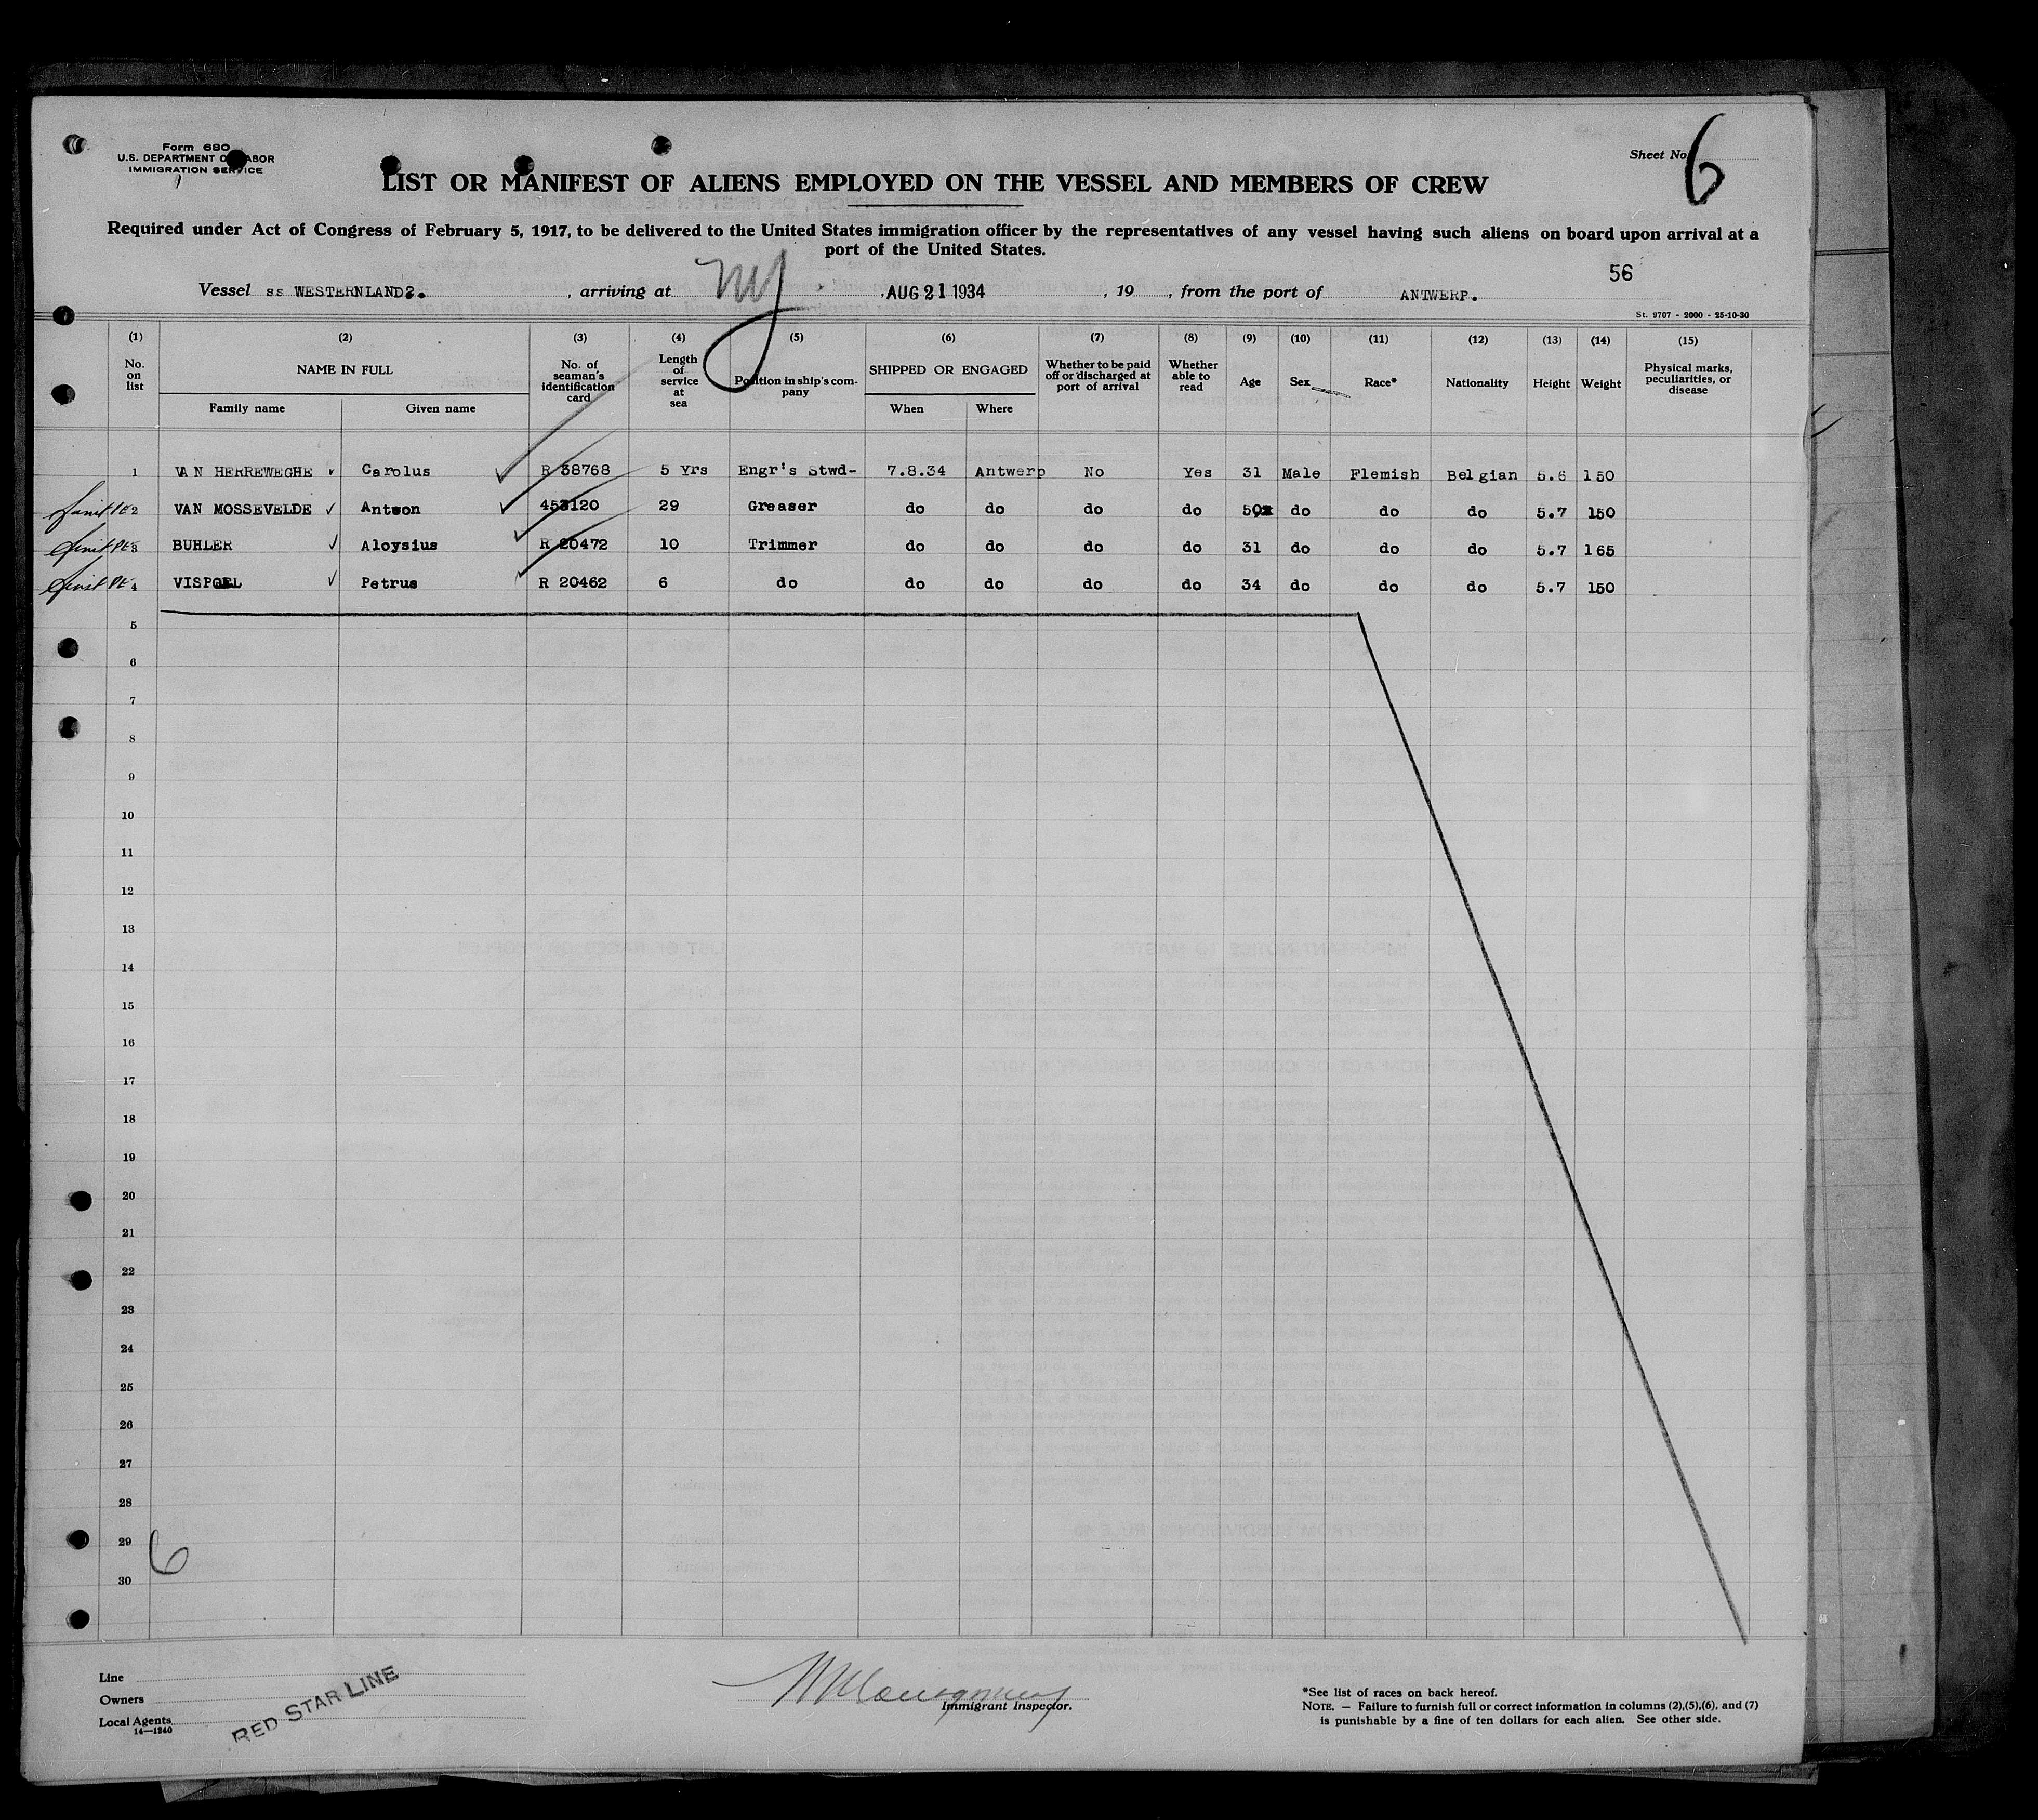 Form 680
U.S. DEPARTMENT OF LABOR
IMMIGRATION SERVICE
Sheet No. 6
LIST OR MANIFEST OF ALIENS EMPLOYED ON THE VESSEL AND MEMBERS OF CREW
Required under Act of Congress of February 5, 1917, to be delivered to the United States immigration officer by the representatives of any vessel having such aliens on board upon arrival at a
port of the United States.
56
Vessel ss WESTERNLAND2. , arriving at NY , AUG 21 1934 , 19 , from the port of ANTWERP.
St. 9707 - 2000 - 25-10-30
(1) (2) (3) (4) (5) (6) (7) (8) (9) (10) (11) (12) (13) (14) (15)
No. on list NAME IN FULL No. of seaman's identification card Length of service at sea Position in ship's company SHIPPED OR ENGAGED Whether to be paid off or discharged at port of arrival Whether able to read Age Sex Race* Nationality Height Weight Physical marks, peculiarities, or disease
Family name Given name When Where
1 VAN HERREWEGHE Carolus R 38768 5 Yrs Engr's Stwd- 7.8.34 Antwerp No Yes 31 Male Flemish Belgian 5.6 150
2 VAN MOSSEVELDE Antoon 453120 29 Greaser do do do do 50 do do do 5.7 150
3 BUHLER Aloysius R 20472 10 Trimmer do do do do 31 do do do 5.7 165
4 VISPOEL Petrus R 20462 6 do do do do do 34 do do do 5.7 150
5
6
7
8
9
10
11
12
13
14
15
16
17
18
19
20
21
22
23
24
25
26
27
28
29
6
30
Line
Owners
Local Agents
14—1240
RED STAR LINE
Immigrant Inspector.
*See list of races on back hereof.
NOTE. — Failure to furnish full or correct information in columns (2),(5),(6), and (7)
is punishable by a fine of ten dollars for each alien. See other side.